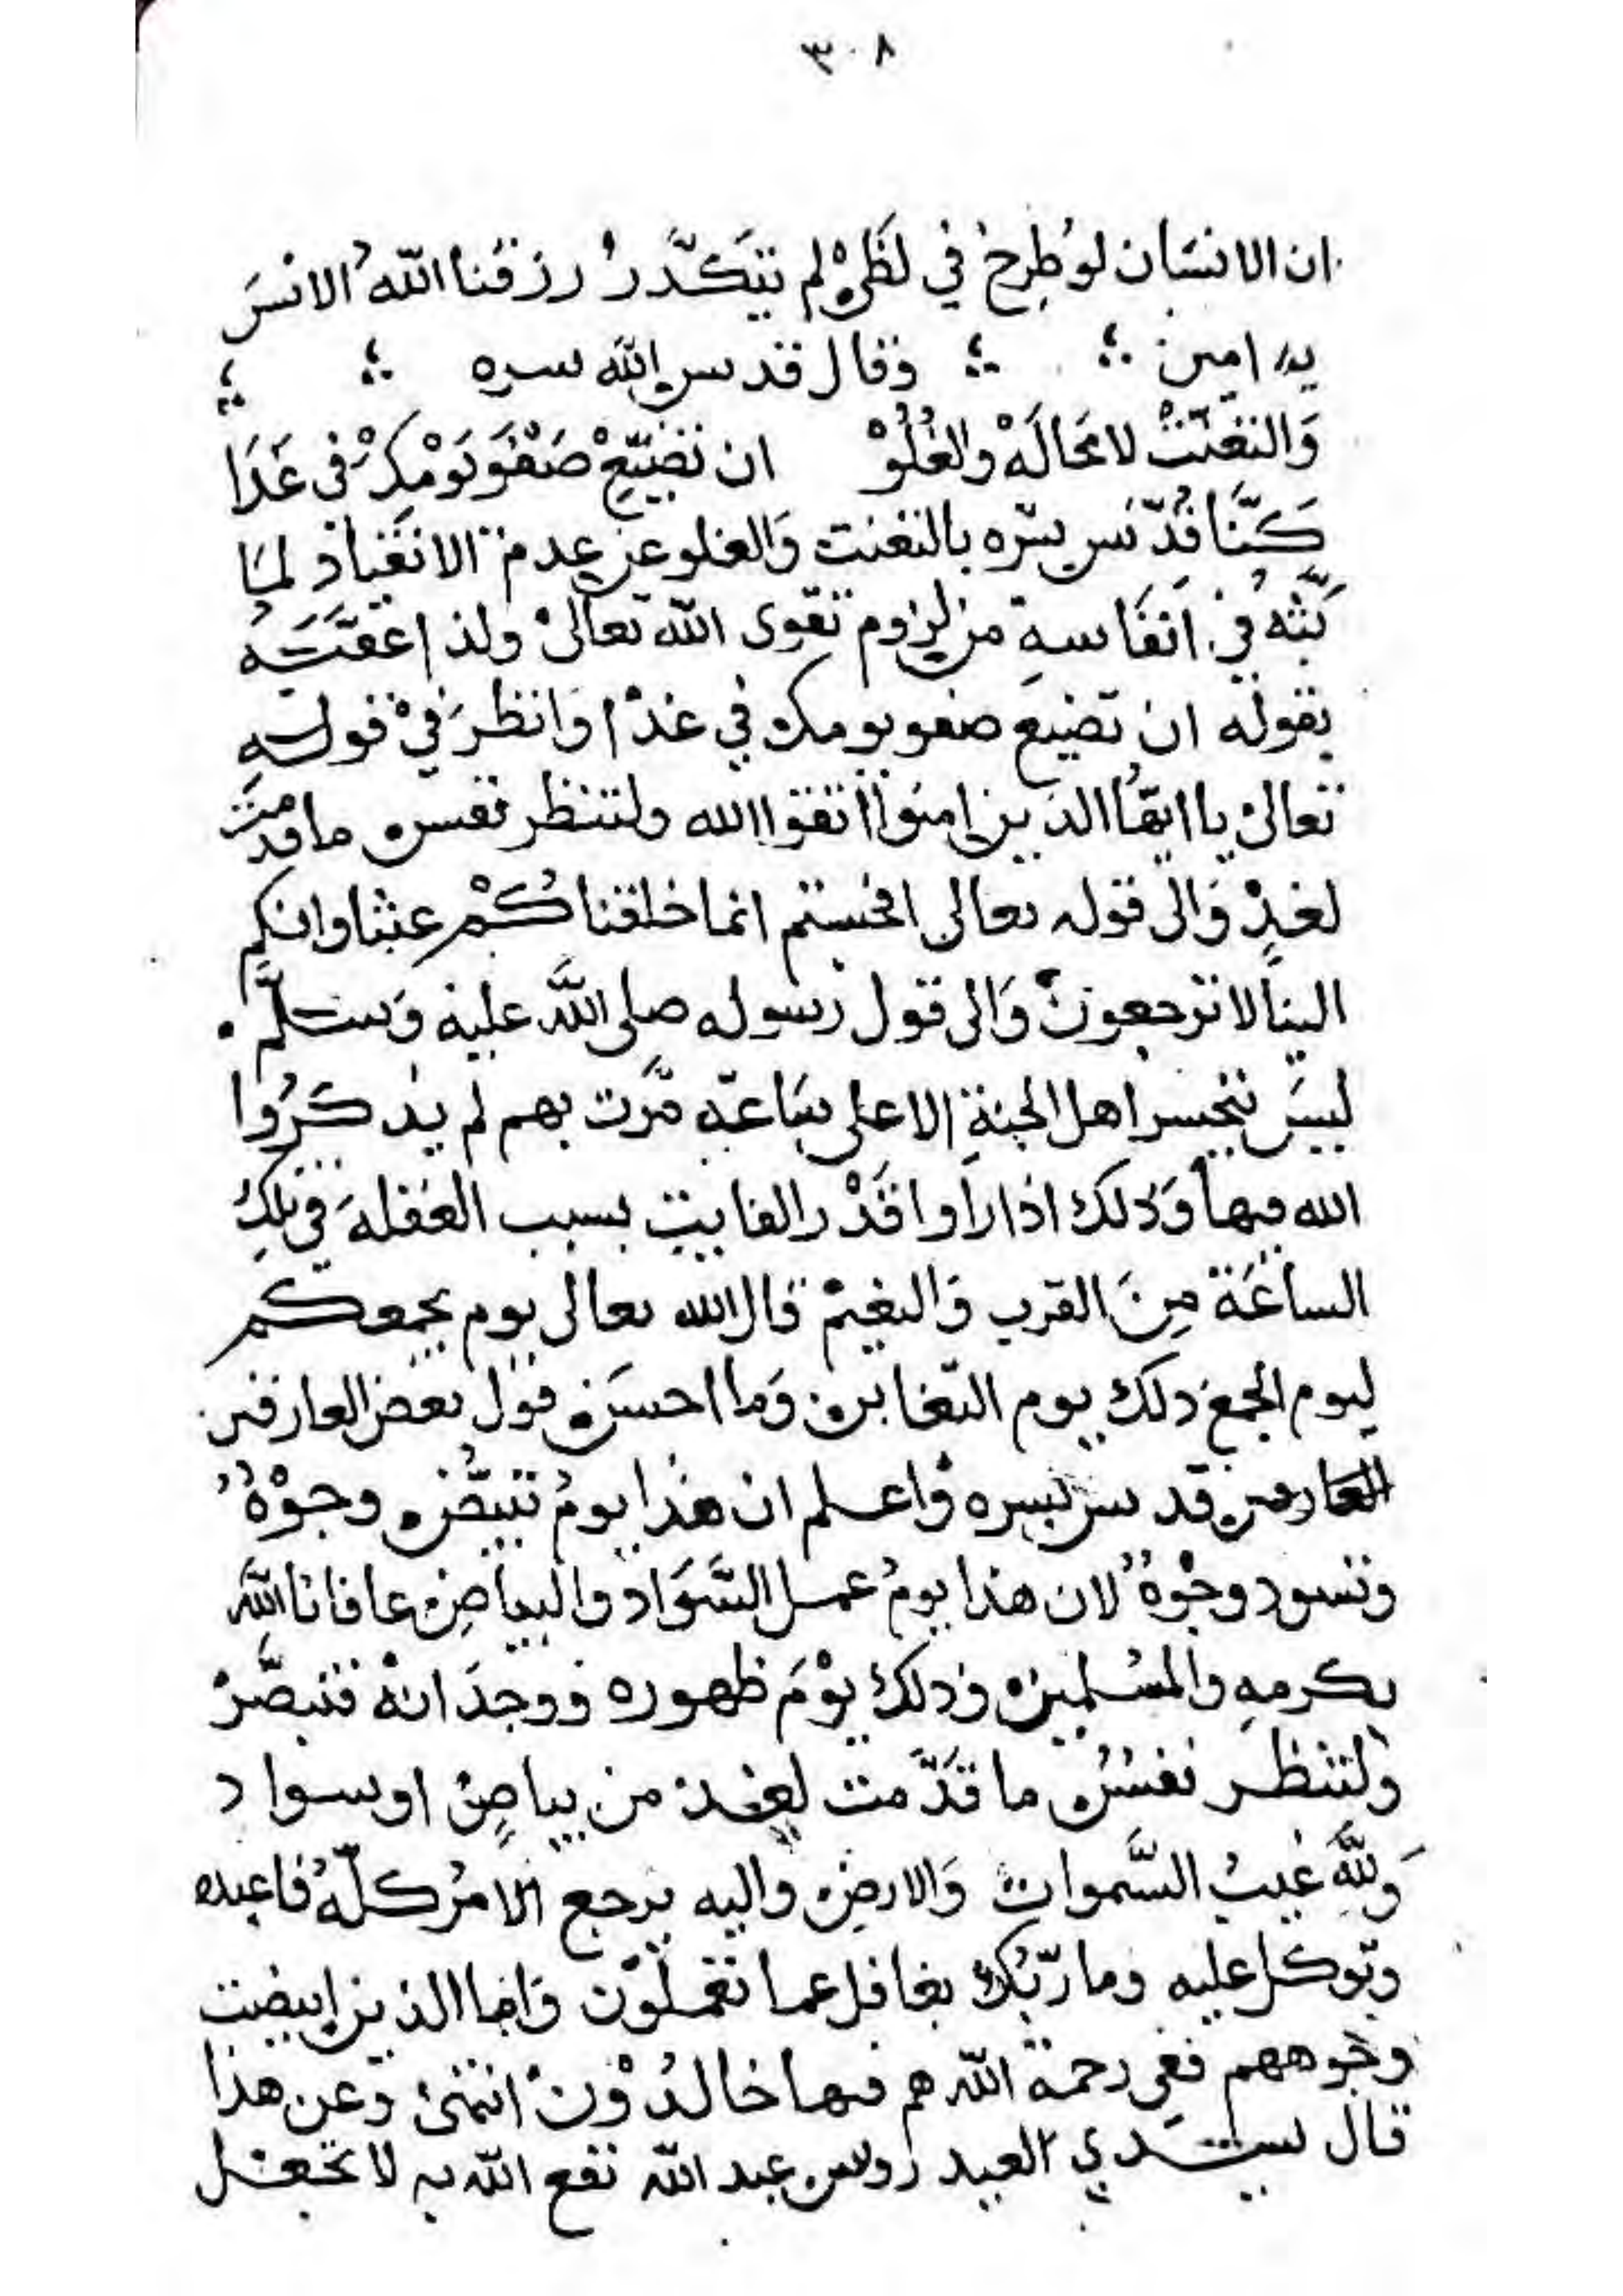 ٣٠٨
ان الانسَان لوطُرِحْ في لَظىْ لم تتكَدَّرْ رزقنا اللهُ الانسَ
به امين وقال قدس الله سره
وَالتعَنّتْ لامحَالَهْ والغُلُوْ ان تضَيّعْ صَفْوَ يَوْمِكْ في غَدَا
كَنَّا قُدّسَ سرّه بالتعنت وَالغلو عن عدم الانقياد لما
بَثّهُ في انفَاسهِ من لزوم تقوى الله تعالىْ ولذا عقَّبَهُ
بقوله ان تضيع صفو يومك في غدْا وَانظرَ فيْ قوله
تعالى يا ايهُّا الذين امنوا اتقوا الله ولتنظر نفس ما قدمت
لغدٍ وَالى قوله تعالى افحسبتم انما خلقناكُمْ عبثا وانكم
الينا لا ترجعون وَالى قول رسوله صلى اللَّه عليه وَسلَّم
ليسَ يتحسر اهل الجنةِ الا على سَاعةٍ مَّرت بهم لم يذكرُوا
الله فيها وَذلك اذا راَوا قَدْر الفايت بسبب الغفلهَ في تلكَ
الساعَة مِنَ القرب وَالنعيم قال الله تعالى يوم يجمعكم
ليوم الجمع ذلك يوم التغابن وَما احسَن قول بعض العارفين
العارفين قدس سره وَاعلم ان هذا يومُ تبيضّ وجوْهُ
وتسود وجوْهُ لان هذا يومُ عمل السَّوَاد والبياضِ عافانا اللَّه
بكرمهِ والمسُلمين وَذلك يوْمَ ظهوره ووجدَانهْ فتبصّرْ
ولتنظر نفسُ ما قدَّمت لغد من بياضٍ او سواد
وَللَّه غيبُ السَّموات وَالارضِ واليه يرجع الامرُ كلّهُ فاعبده
وتوكل عليه وما ربّكَ بغافل عما تعملوْن وَاما الذين ابيضت
وجوههم ففي رحمة الله هم فيها خالدُوْن انتهىْ وَعن هذا
قال سيدي العيدروس عبد الله نفع الله به لا تجعل